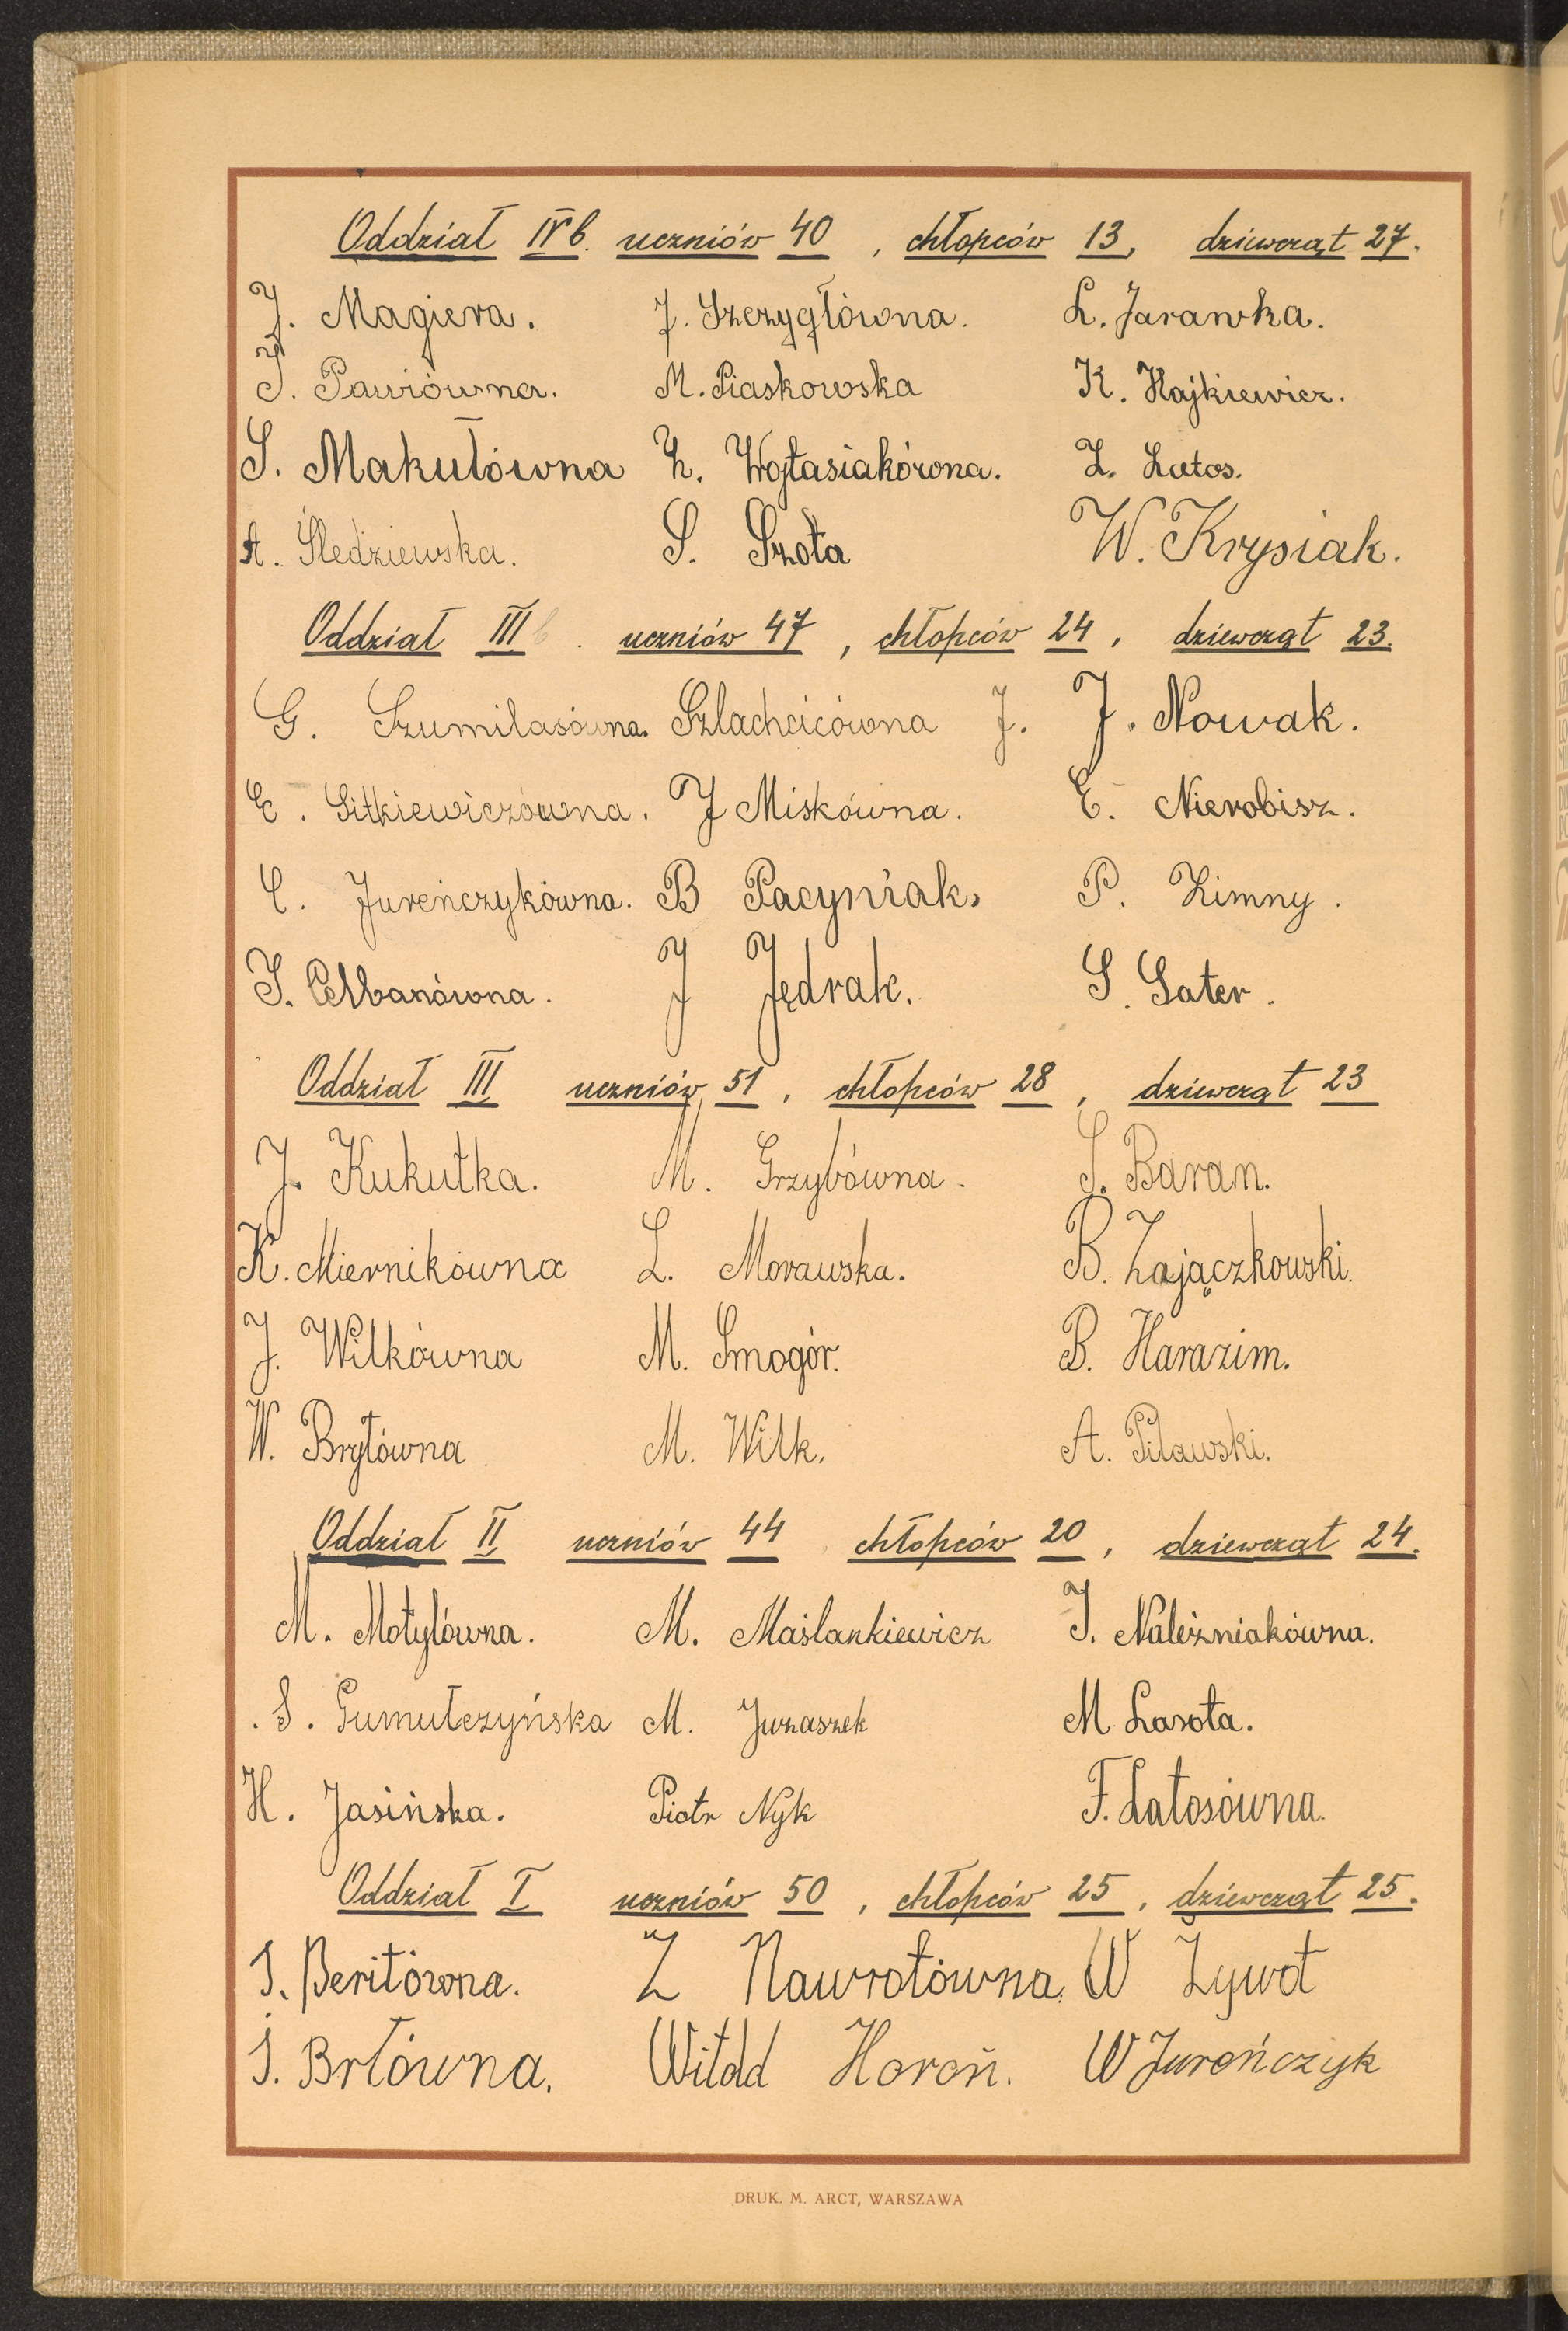 Oddział IV b. uczniów 40, chłopców 13, dziewcząt 27.
J. Magiera. J. Szczygłówna. L. Jarawka.
J. Pawiówna. M. Piaskowska K. Hajkiewicz.
S. Makułówna Z. Wojtasiakówna. Z. Latos.
A. Śledziewska. S. Szota W. Krysiak.
Oddział III b. uczniów 47, chłopców 24, dziewcząt 23.
G. Szumilasówna. Szlachcicówna J. J. Nowak.
E. Sitkiewiczówna. J Miskówna. E. Nierobisz.
C. Jureńczykówna. B Pacyniak, P. Zimny.
J. J Jędrak. S. Sater.
Oddział III uczniów 51, chłopców 28, dziewcząt 23
J. Kukułka. M. Grzybówna. S. Baran.
K. Miernikówna L. Morawska. B. Zajączkowski.
J. Wilkówna M. Smogór. B. Harazim.
W. Bryłówna M. Wilk. A. Pilawski.
Oddział II uczniów 44 chłopców 20, dziewcząt 24.
M. Motylówna. M. Maślankiewicz J. Należniakówna.
S. Gumułczyńska M. Juraszek M Lasota.
H. Jasińska. Piotr Nyk F. Latosówna.
Oddział I uczniów 50, chłopców 25, dziewcząt 25.
J. Beritówna. Z Nawrotówna. W Żywot
J. Brłówna. Witold Horoń. W Jurończyk
DRUK. M. ARCT, WARSZAWA